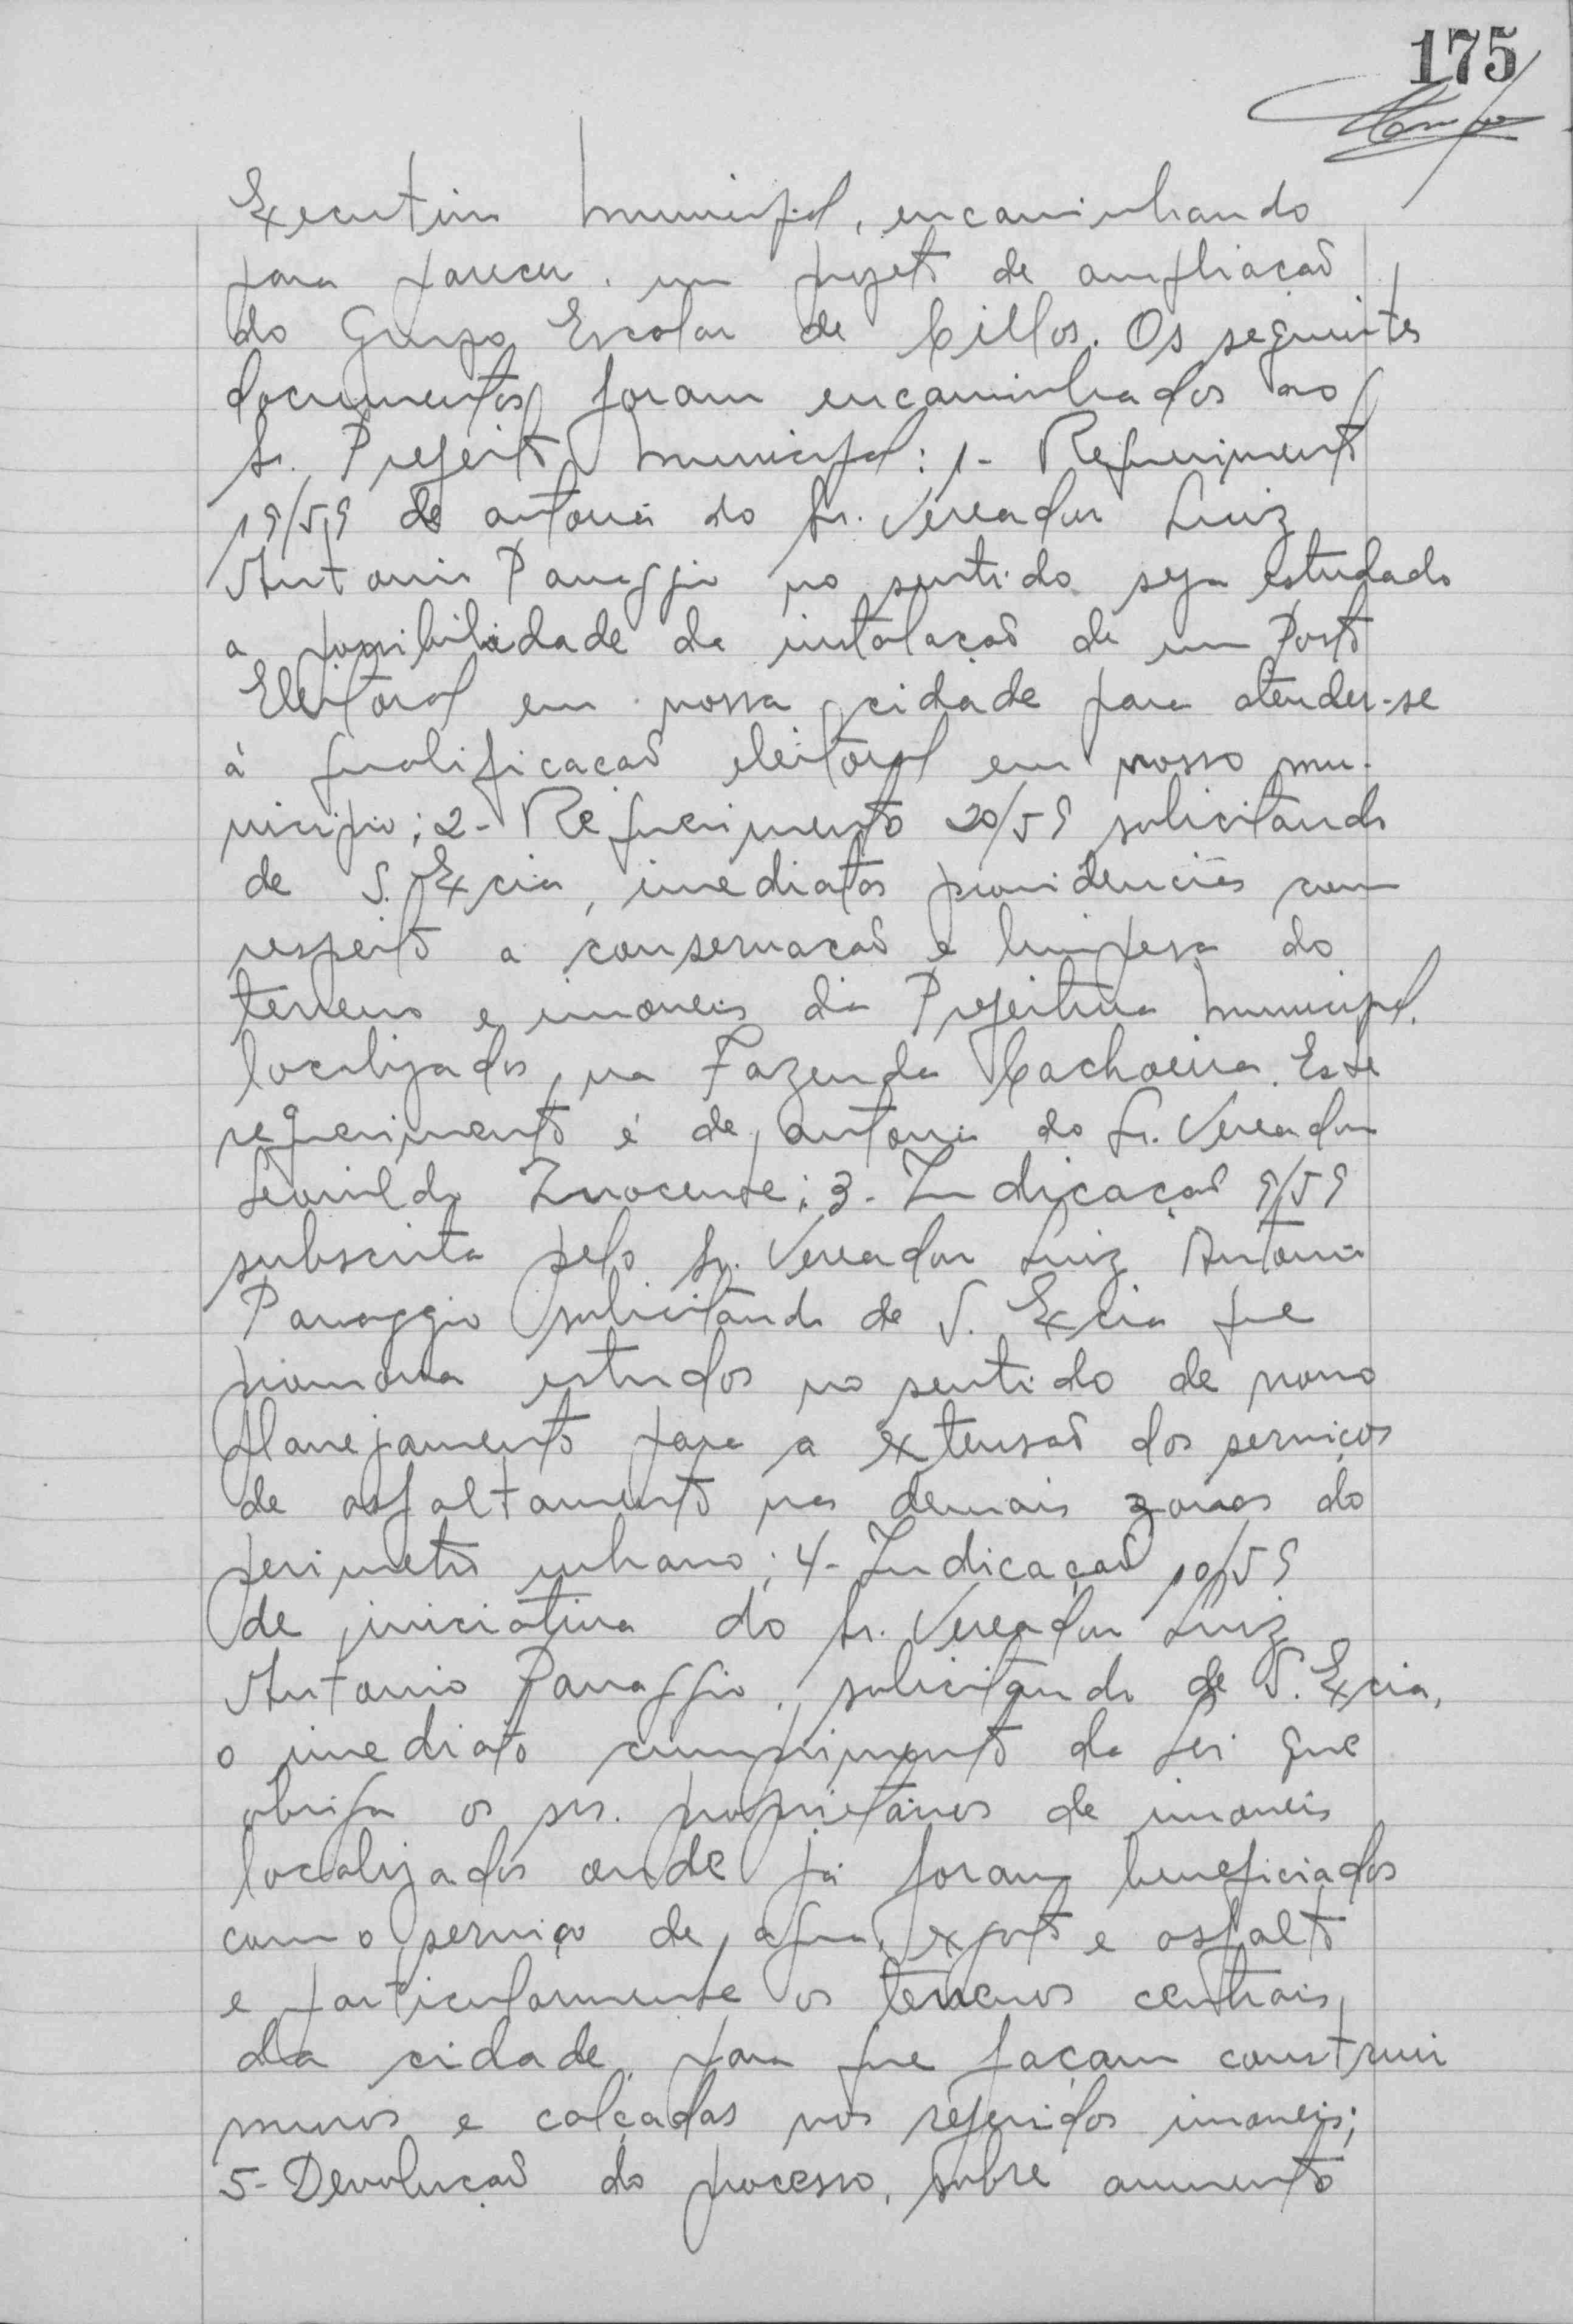 175
Executivo Municipal, encaminhando
para parecer. um projeto de ampliação
do Grupo Escolar de Cillos. Os seguintes
documentos foram encaminhados ao
Sr. Prefeito Municipal: 1- Requerimento
19/59 de autoria do Sr. Vereador Luiz
Antonio Panaggio no sentido seja estudado
a possibilidade da instalação de um Posto
Eleitoral em nossa cidade para atender-se
á qualificação eleitoral em nosso mu-
nicipio; 2- Requerimento 20/59 solicitando
de S. Excia, imediatas providencias com
respeito a conservação e limpesa do
terreno e imoveis da Prefeitura Municipal.
localizados na Fazenda Cachoeira. Este
requerimento é de autoria do Sr. Vereador
Leonildo Inocente; 3- Indicação 9/59
subscrita pelo Sr. Vereador Luiz Antonio
Panaggio solicitando de S. Excia que
promova estudos no sentido de novo
planejamento para a extensão dos serviços
de asfaltamento nas demais zonas do
perimetro urbano; 4- Indicação 10/59
de iniciativa do Sr. Vereador Luiz
Antonio Panaggio, solicitando de S. Excia,
o imediato cumprimento da Lei que
obriga os srs. proprietários de imoveis
localizados onde já foram beneficiados
com o serviço de agua, exgoto e asfalto
e particularmente os terrenos centrais,
da cidade, para que façam construir
muros e calçadas nos referidos imoveis;
5- Devolução do processo, sobre aumento